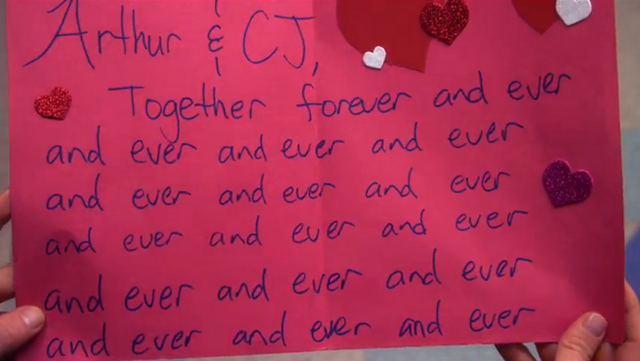 Arthur & CJ,
Together forever and ever
and ever and ever and ever
and ever and ever and ever
and ever and ever and ever
and ever and ever and ever
and ever and ever and ever